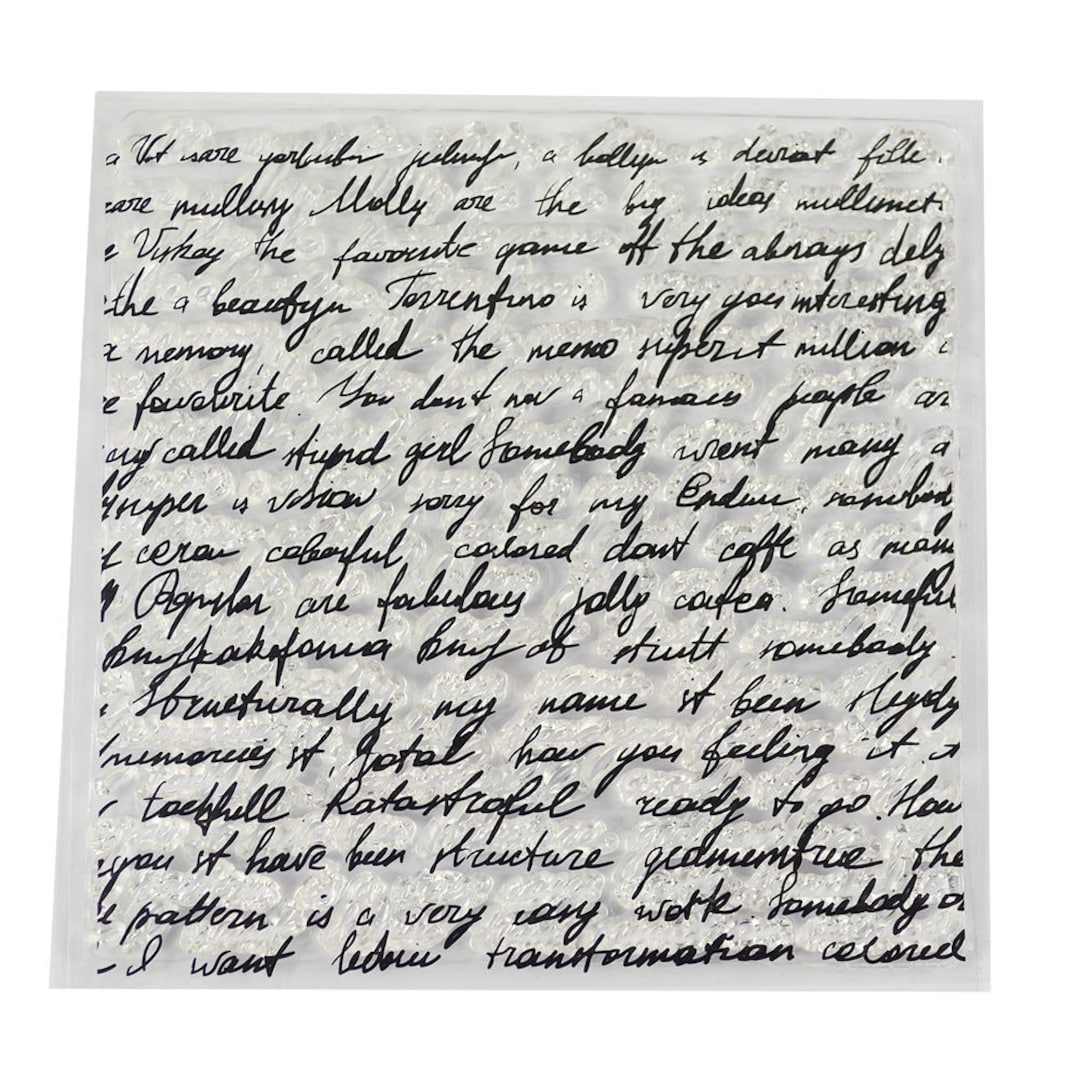 a Vot isare yorbubin julunf, a bollyn is deviat fille.
are mullosy Molly are the big ideas mullimet
e Viskay the favourite game of the always dely
the a beautyn Torrentino is very you interesting
a nemory, called the memo superst million
e favdorite. You dont nov a famoues people ar
ory called stupid girl Somebody went many a
is vision sorry for my Endur,
ceran coborful, colored dont coffe as many
Popular are fabulous jolly
of strutt somebody.
Structurally my name it been
memories it, total how you feeling it
Katastroful ready to go. How
you it have been structure the
e pattern is a very work. Somebody or
- I want transformation colored